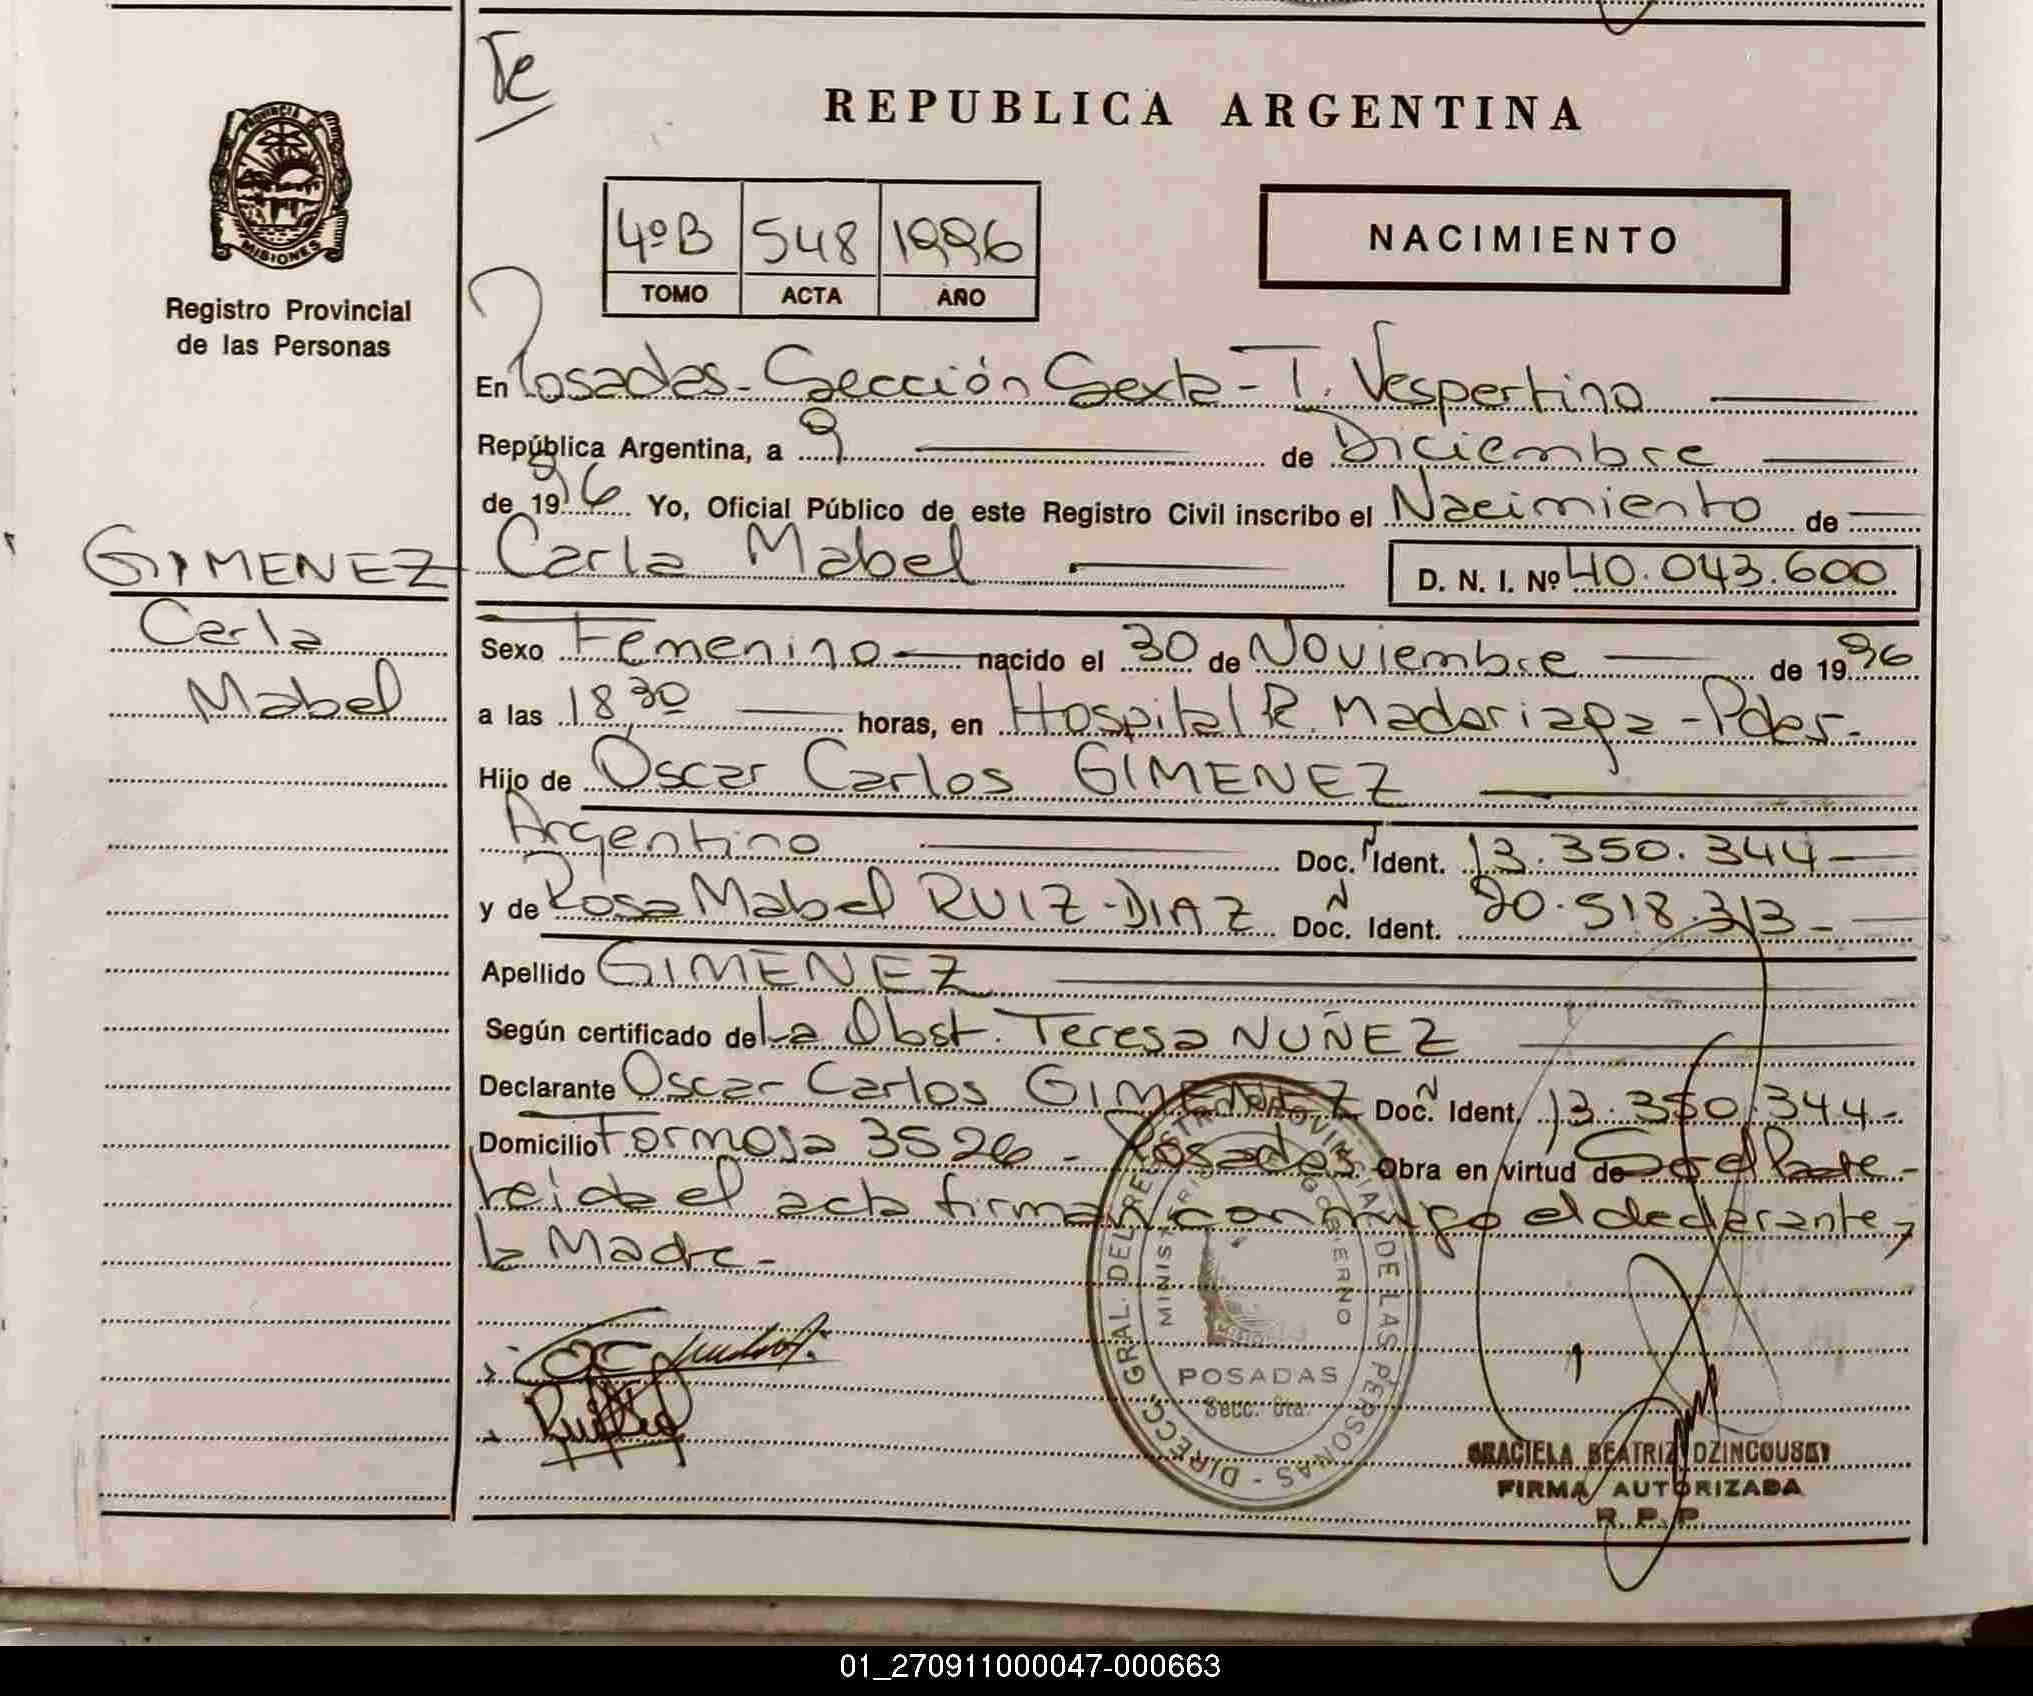 Te
REPUBLICA ARGENTINA
PROVINCIA DE
MISIONES
Registro Provincial
de las Personas
4º B 548 1996
TOMO ACTA AÑO
NACIMIENTO
En Posadas - Sección Sexta - T. Vespertino
República Argentina, a 9 de Diciembre
de 1996 Yo, Oficial Público de este Registro Civil inscribo el Nacimiento de
GIMENEZ Carla Mabel D. N. I. Nº 40.043.600
Carla
Mabel
Sexo Femenino nacido el 30 de Noviembre de 1996
a las 18 30 horas, en Hospital R. Madariaga - Pdas.
Hijo de Oscar Carlos GIMENEZ
Argentino Doc. N Ident. 13.350.344
y de Rosa Mabel RUIZ-DIAZ Doc. N Ident. 20.518.313
Apellido GIMENEZ
Según certificado de La Obst. Teresa NUÑEZ
Declarante Oscar Carlos GIMENEZ Doc. N Ident. 13.350.344
Domicilio Formosa 3526 - Posadas Obra en virtud de Ser el Padre -
Leida el acta firman conmigo el declarante y
la Madre -
DIRECC. GRAL. DEL REGISTRO PROVINCIAL DE LAS PERSONAS -
MINISTERIO GOBIERNO
POSADAS
Secc. 6ta.
GRACIELA BEATRIZ DZINCOUSKY
FIRMA AUTORIZADA
R. P. P.
01_270911000047-000663